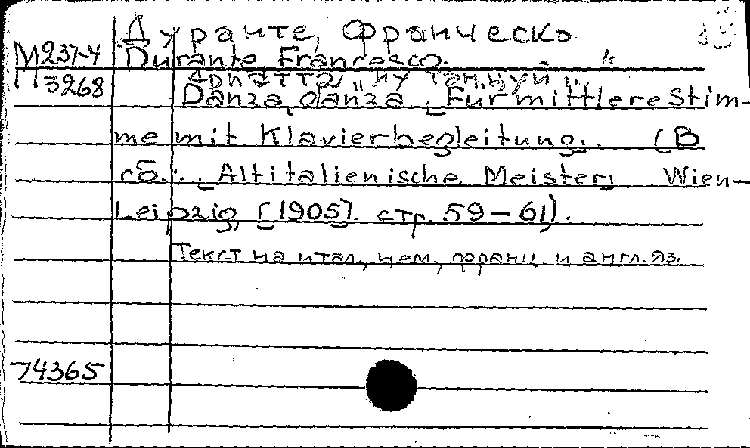 Дуранте, Франческо
М 237-4 Durante Francesco.
3268
Danza, danza. Für mittlere Stim-
me mit Klavierbegleitung. (В
сб.: Altitalienische Meister, Wien-
Leipzig, [1905]. стр. 59-61).
Текст на итал., нем., франц. и англ. яз.
74365